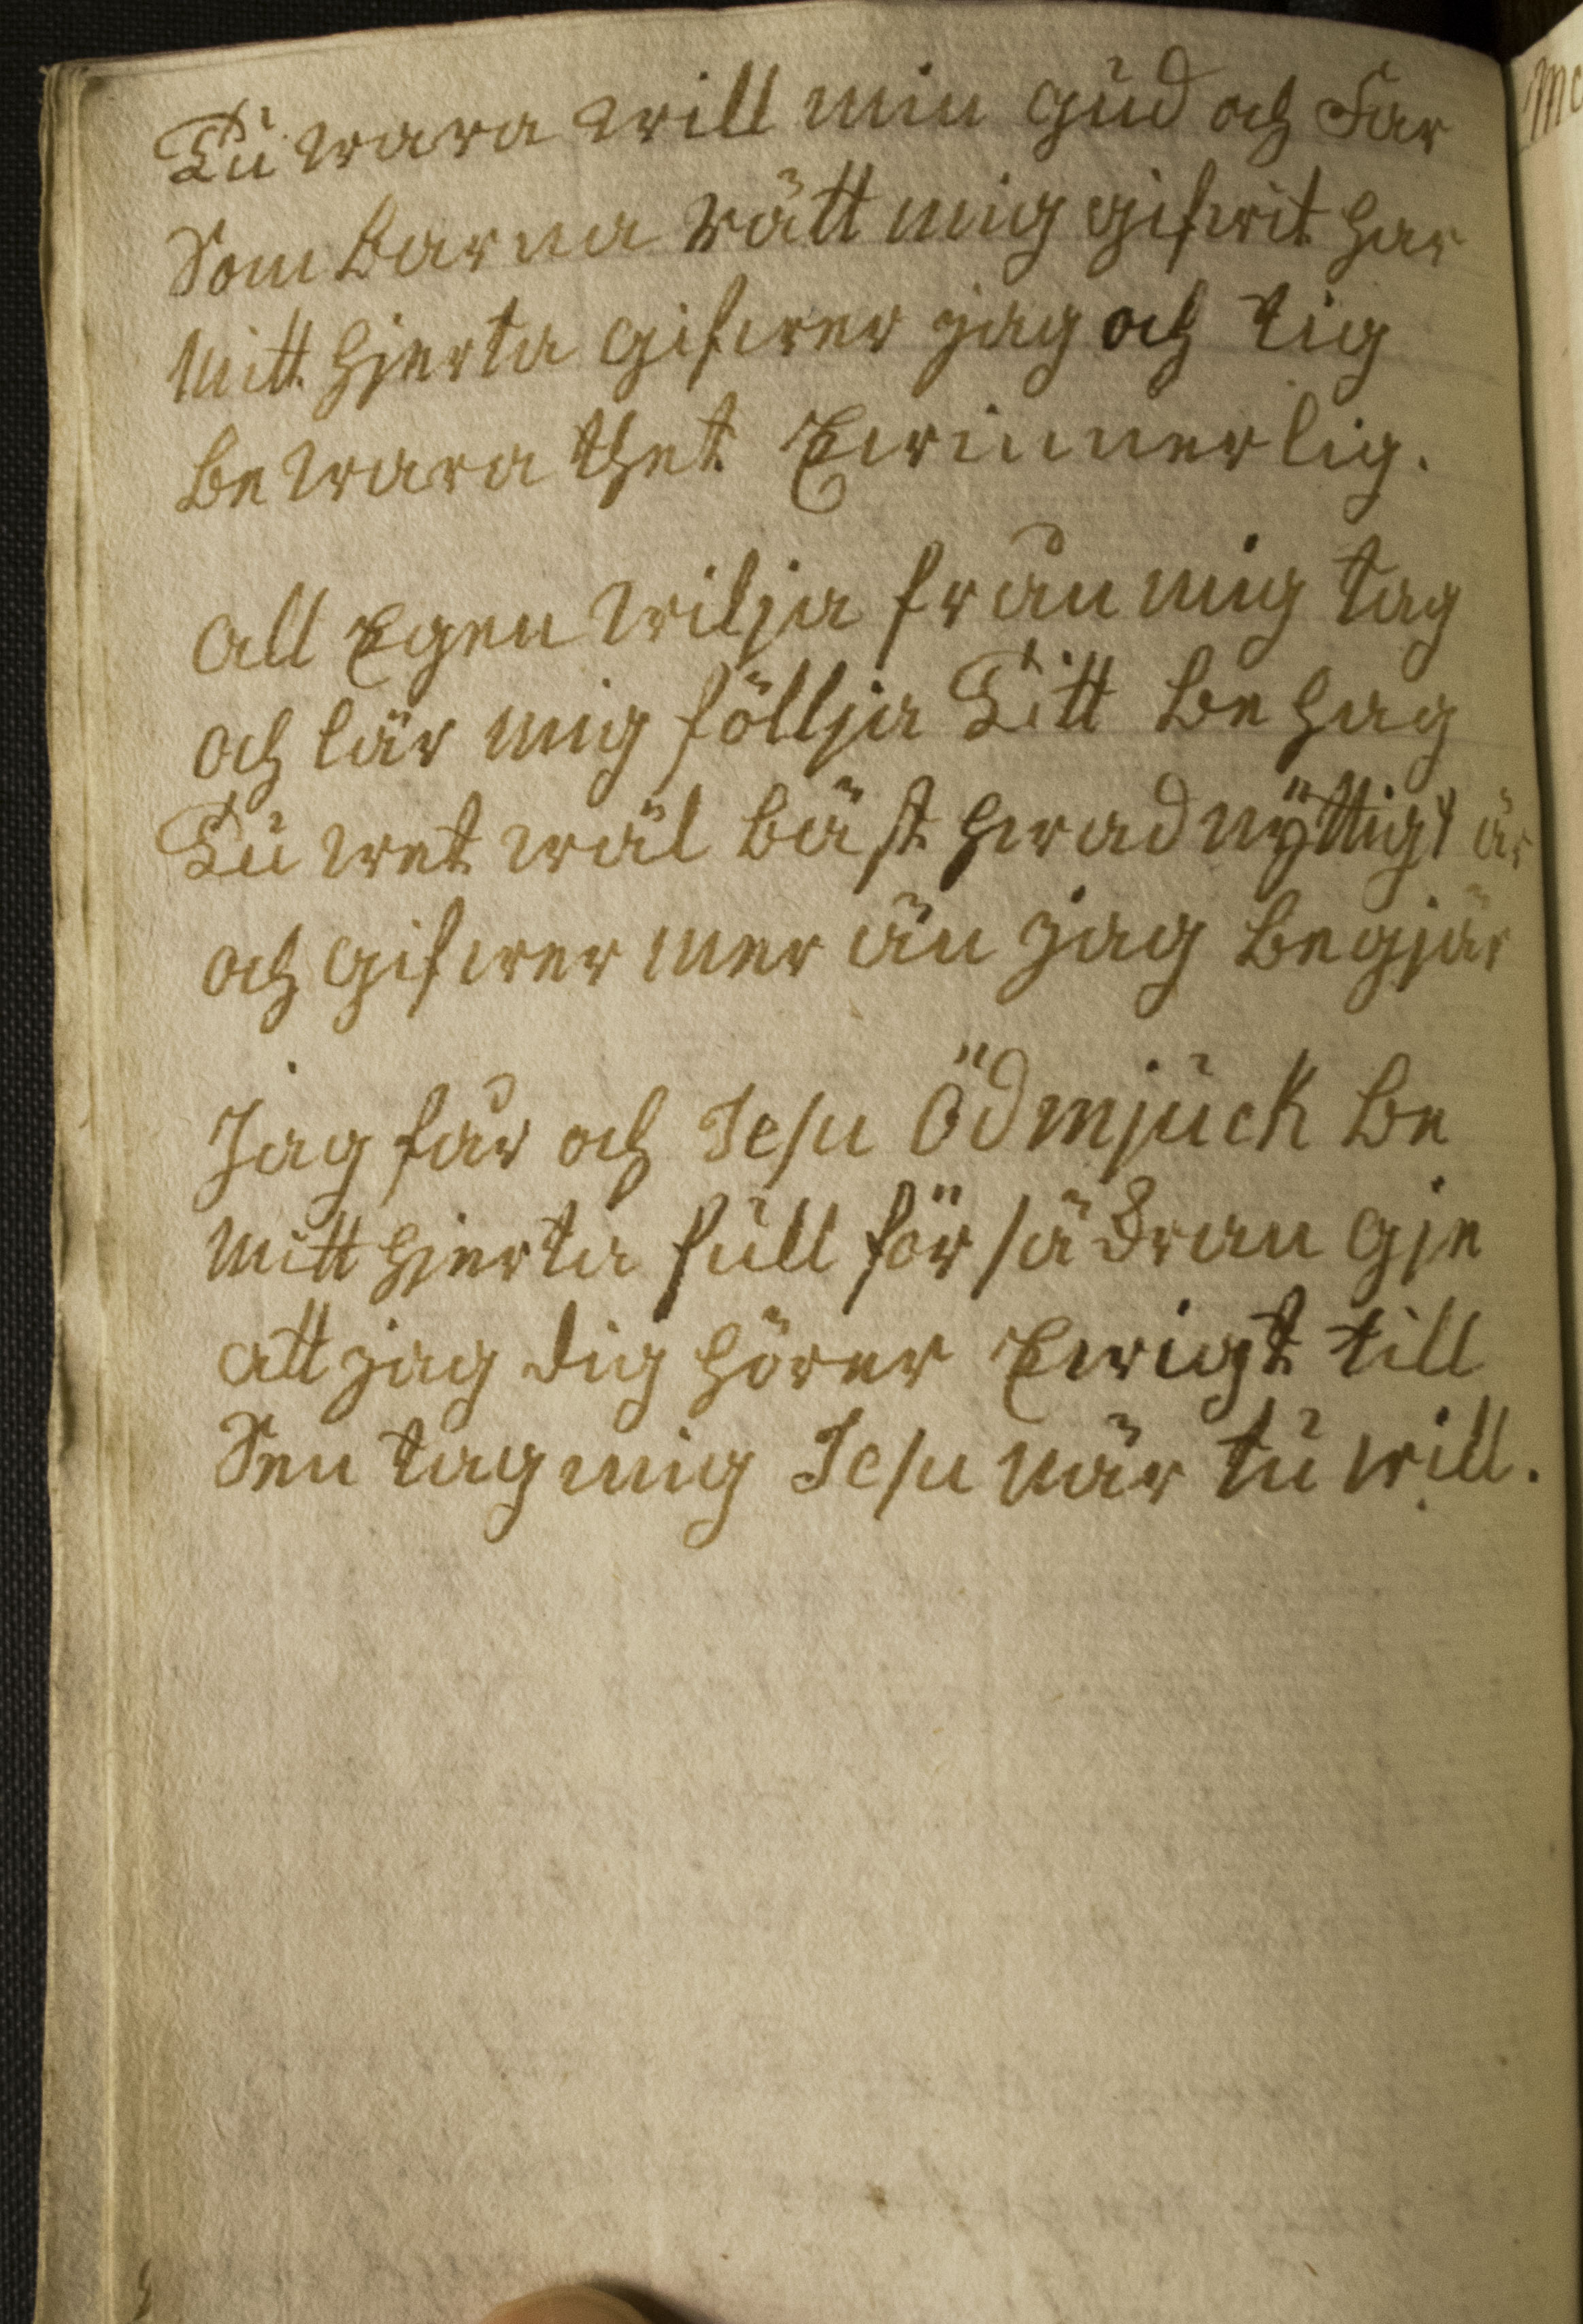 Tu wara will min Gud och Far
Som Barna rätt mig gifwit har
Mitt hjerta gifwer jag och tig
Bewara thet Ewinnerlig.
all Egen wilja från mig tag
och lär mig föllja Titt Behag
Tu wet wäl bäst hwad nÿttigt är
och gifwer mer än jag Begjär
Jag får och Jesu Ödmjuck Be
Mitt hjerta full försädran gje
att jag dig hörer Ewigt till
Sen tag mig Jesu när tu will.